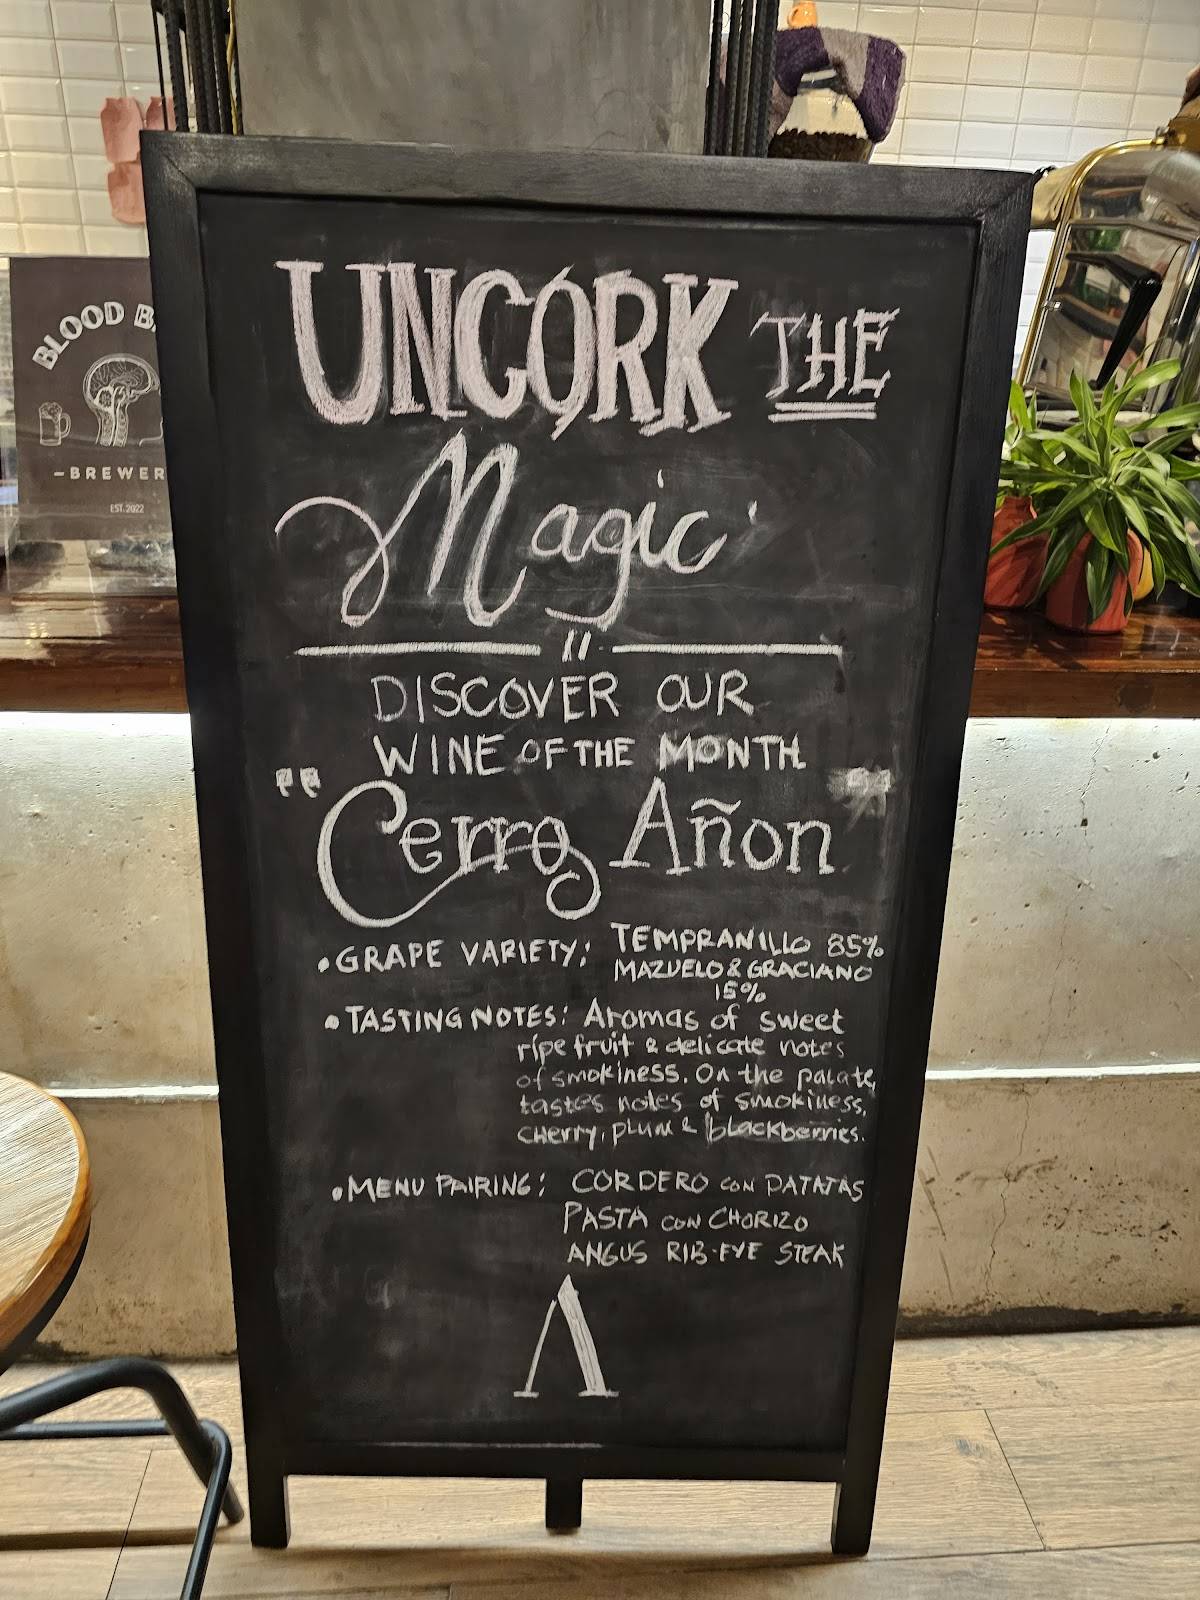 UNCORK THE
Magic
DISCOVER OUR
WINE OF THE MONTH
"Cerro Añon"
• GRAPE VARIETY: TEMPRANILLO 85%
MAZUELO & GRACIANO
15%
• TASTING NOTES: Aromas of sweet
ripe fruit & delicate notes
of smokiness. On the palate,
tastes notes of smokiness,
cherry, plum & blackberries.
• MENU PAIRING: CORDERO CON PATATAS
PASTA CON CHORIZO
ANGUS RIB-EYE STEAK
Λ
BLOOD
BREWER
EST. 2022